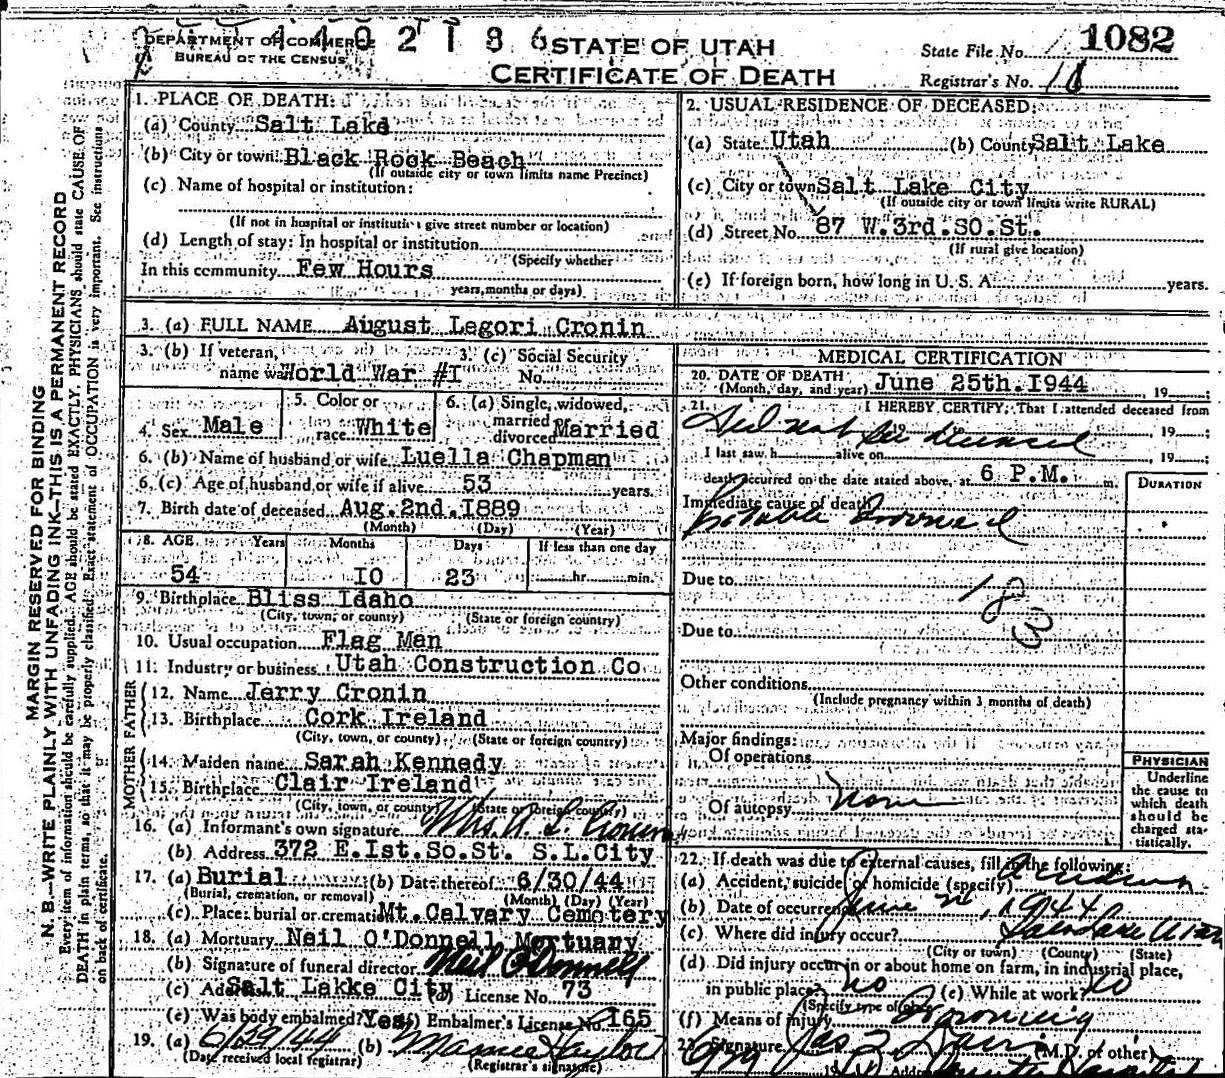 DEPARTMENT OF COMMERCE
BUREAU OF THE CENSUS
4 4 0 2 1 8 6
STATE OF UTAH
CERTIFICATE OF DEATH
State File No. 1082
Registrar's No.
MARGIN RESERVED FOR BINDING
N. B.—WRITE PLAINLY WITH UNFADING INK—THIS IS A PERMANENT RECORD
Every item of information should be carefully supplied. AGE should be stated EXACTLY. PHYSICIANS should state CAUSE OF
DEATH in plain terms, so that it may be properly classified. Exact statement of OCCUPATION is very important. See instructions
on back of certificate.
1. PLACE OF DEATH:
(a) County Salt Lake
(b) City or town Black Rock Beach
(If outside city or town limits name Precinct)
(c) Name of hospital or institution:
(If not in hospital or institution give street number or location)
(d) Length of stay: In hospital or institution
(Specify whether
In this community Few Hours
years, months or days)
2. USUAL RESIDENCE OF DECEASED:
(a) State Utah (b) County Salt Lake
(c) City or town Salt Lake City
(If outside city or town limits write RURAL)
(d) Street No. 87 W.3rd.SO.St.
(If rural give location)
(e) If foreign born, how long in U. S. A. years.
3. (a) FULL NAME August Legori Cronin
3. (b) If veteran,
name war World War #I
3. (c) Social Security
No.
4. Sex Male
5. Color or
race White
6. (a) Single, widowed,
married
divorced Married
6. (b) Name of husband or wife Luella Chapman
6. (c) Age of husband or wife if alive 53 years.
7. Birth date of deceased Aug.2nd.I889
(Month) (Day) (Year)
8. AGE Years Months Days If less than one day
54 IO 23 hr. min.
9. Birthplace Bliss Idaho
(City, town, or county) (State or foreign country)
10. Usual occupation Flag Man
11. Industry or business Utah Construction Co
FATHER
12. Name Jerry Cronin
13. Birthplace Cork Ireland
(City, town, or county) (State or foreign country)
MOTHER
14. Maiden name Sarah Kennedy
15. Birthplace Clair Ireland
(City, town, or county) (State or foreign country)
16. (a) Informant's own signature Mrs. A. L. Cronin
(b) Address 372 E.Ist.So.St. S.L.City
17. (a) Burial (b) Date thereof 6/30/44
(Burial, cremation, or removal) (Month) (Day) (Year)
(c) Place: burial or cremation Mt.Calvary Cemetery
18. (a) Mortuary Neil O'Donnell Mortuary
(b) Signature of funeral director Neil O'Donnell
(c) Address Salt Lakke City (d) License No. 73
(e) Was body embalmed? Yes (f) Embalmer's License No. 165
19. (a) 6/29/44 (b)
(Date received local registrar) (Registrar's signature)
MEDICAL CERTIFICATION
20. DATE OF DEATH
(Month, day, and year) June 25th.I944 19
21. I HEREBY CERTIFY: That I attended deceased from
Did not see deceased 19
I last saw h alive on 19
death occurred on the date stated above, at 6 P.M. m.
DURATION
Immediate cause of death
Probable Drowned
Due to
183
Due to
Other conditions
(Include pregnancy within 3 months of death)
Major findings:
Of operations
Of autopsy None
PHYSICIAN
Underline
the cause to
which death
should be
charged sta-
tistically.
22. If death was due to external causes, fill in the following:
(a) Accident, suicide or homicide (specify) Accident
(b) Date of occurrence June 25, 1944
(c) Where did injury occur? Salt Lake Utah
(City or town) (County) (State)
(d) Did injury occur in or about home on farm, in industrial place,
in public place? no (e) While at work? no
(Specify type of
(f) Means of injury Drowning
23. Signature (M.D. or other)
Address